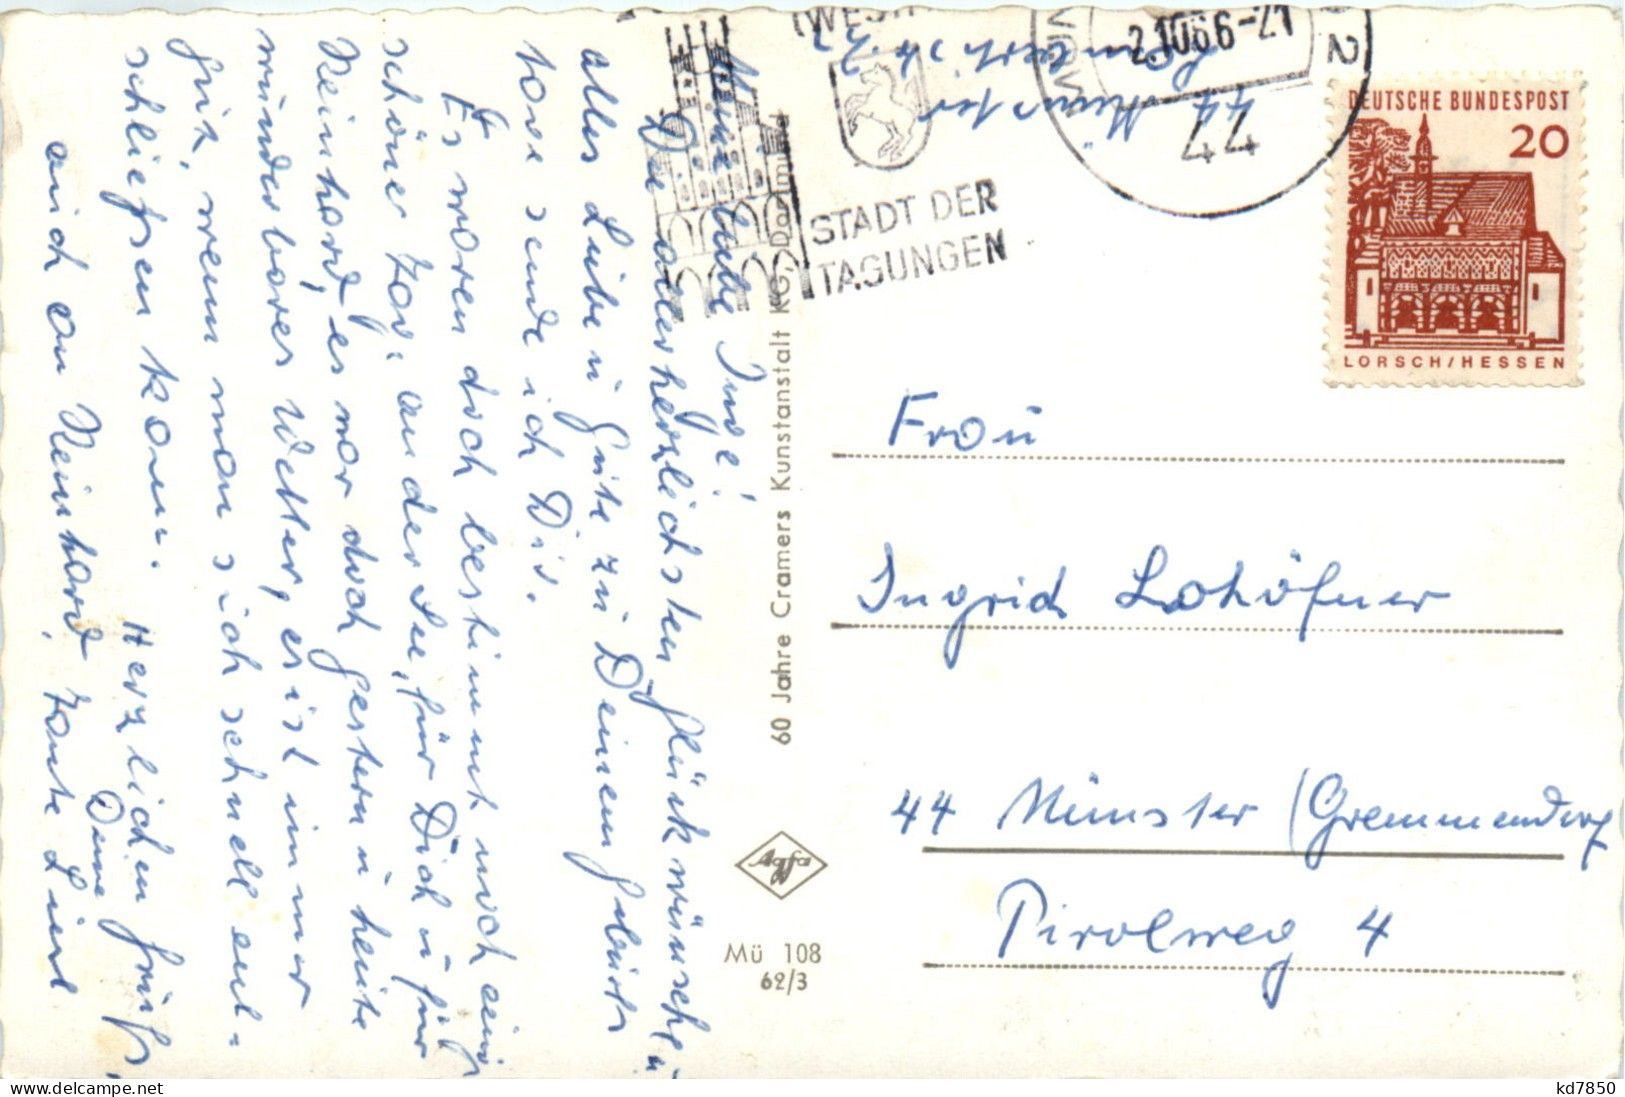 Meine liebe Inge!
Die allerherzlichsten Glückwünsche u
alles Liebe u Gute zu Deinem Geburts
tage sende ich Dir.
Es waren doch bestimmt noch ein
schöner Tag, an der See, für Dich u für
Reinhard, es war doch gestern u heute
wunderbares Wetter, es ist immer
gut, wenn man sich schnell ent-
schließen kann. Herzlichen Gruß,
auch an Reinhard, Deine Tante Liesl
44 Münster
STADT DER
TAGUNGEN
2.10.66-21
44
2
DEUTSCHE BUNDESPOST
20
LORSCH/HESSEN
60 Jahre Cramers Kunstanstalt KG, Dortmund
Agfa
Mü 108
62/3
Frau
Ingrid Lohöfner
44 Münster (Gremmendorf
Pirolweg 4
www.delcampe.net
kd7850